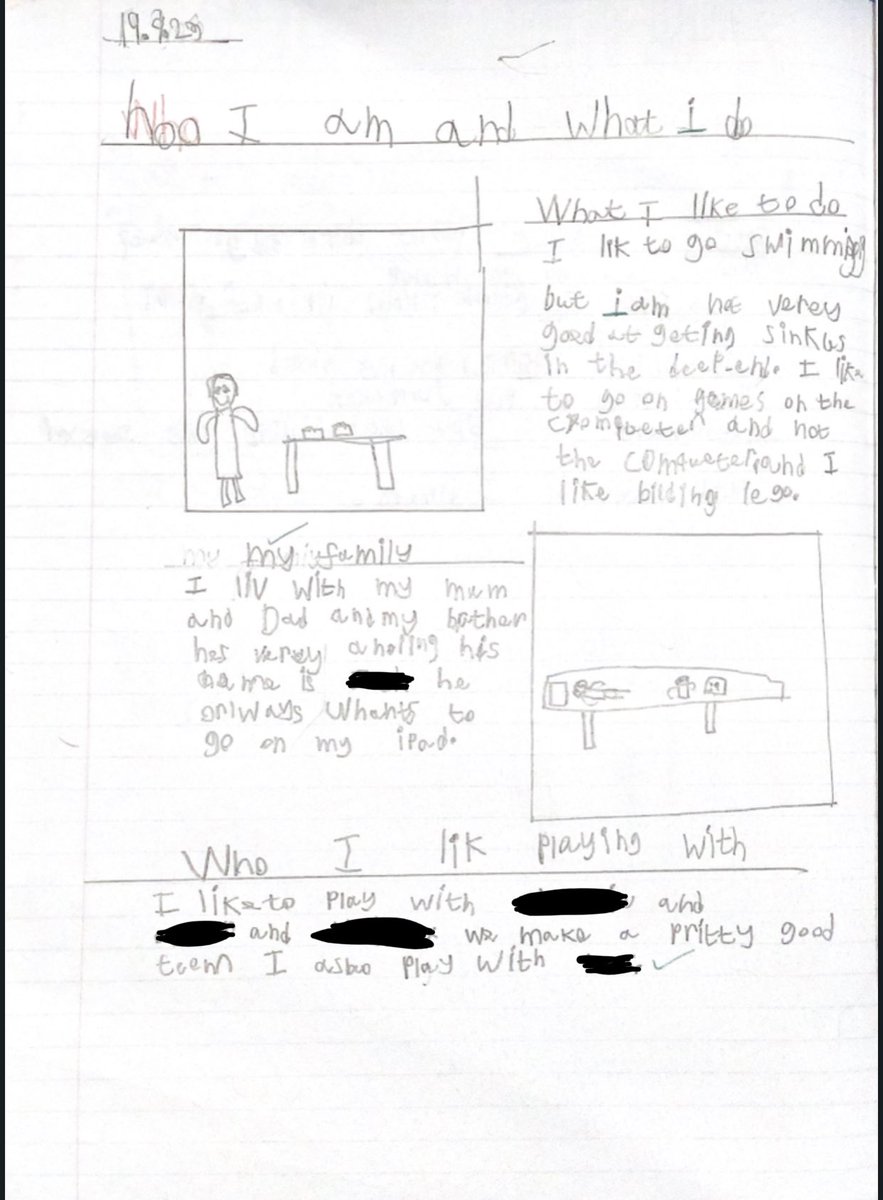 I am and What i do
What I like to do
I lik to go swimming
but i am not verey
good at geting sinkus
in the deep-end. I like
to go on games on the
and not
the I
like bilding lego.
my family
I liv with my mum
and Dad and my bother
has verey anoling his
name is he
orlways Whants to
go on my ipad.
Who I lik playing with
I like to play with and
and we make a pritty good
teem I play with